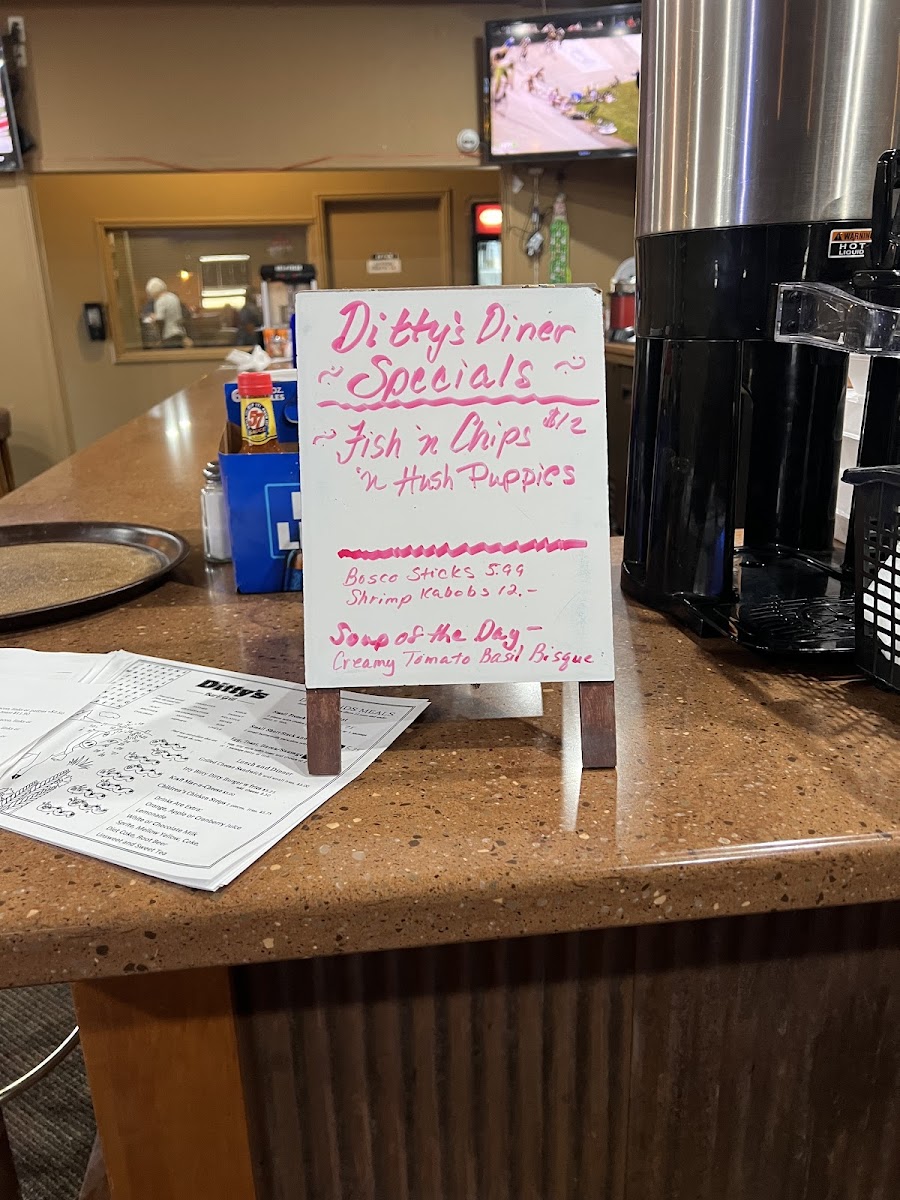 WARNING
HOT
LIQUID
Ditty's Diner
~ Specials ~
~ Fish 'n Chips $12
'n Hush Puppies
Bosco Sticks 5.99
Shrimp Kabobs 12.-
Soup of the Day -
Creamy Tomato Basil Bisque
57
Ditty's
KIDS MEALS
Lunch and Dinner
Drinks Are Extra:
Orange, Apple or Cranberry Juice
Lemonade
White or Chocolate Milk
Sprite, Mellow Yellow, Coke,
Diet Coke, Root Beer
Unsweet and Sweet Tea